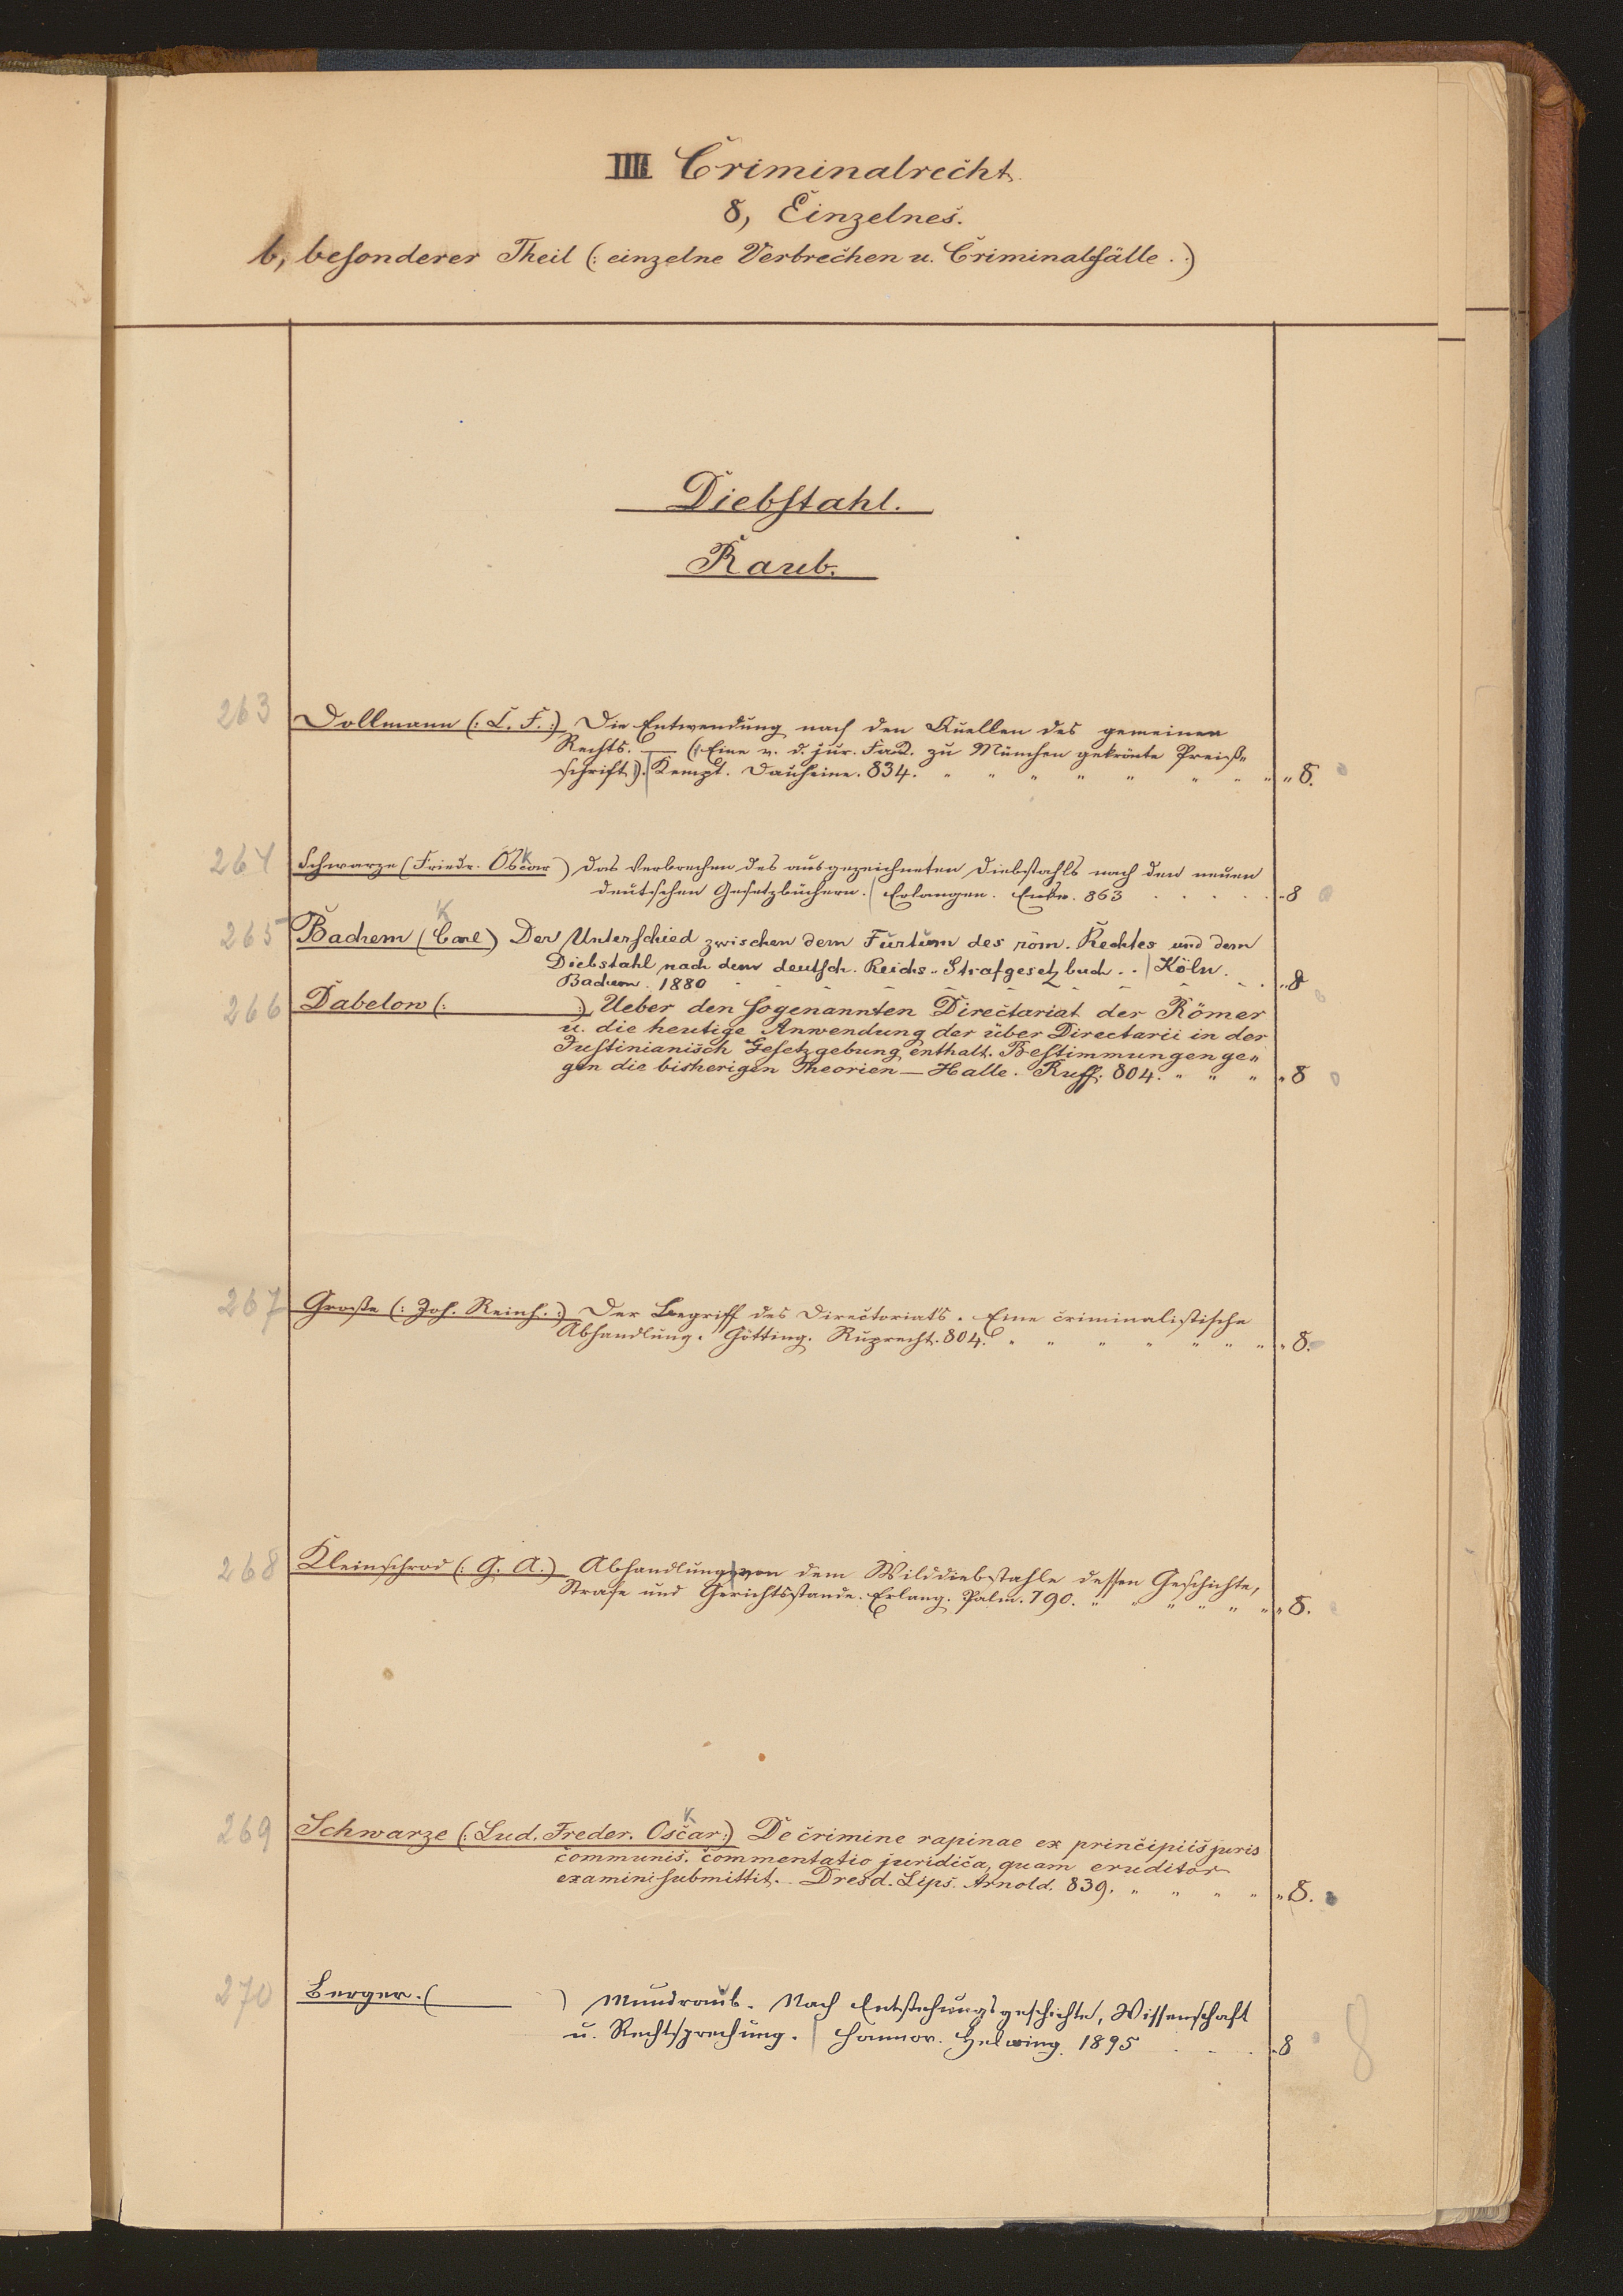 IIII Criminalrecht.
8, Einzelnes.
b, besonderer Theil (: einzelne Verbrechen u. Criminalfälle :)
Diebstahl.
Raub.
263 Dollmann (: L. F. :) Die Entwendung nach den Quellen des gemeinen
Rechts. — (: Eine v. d. jur. Fac. zu München gekrönte Preiß-
schrift :). Kempt. Dannheimer. 834. " " " " " " " " " 8.
264 Schwarze (Friedr. Oscar) Das Verbrechen des ausgezeichneten Diebstahls nach den neuen
deutschen Gesetzbüchern. | Erlangen. Enke. 863 . . . . . -8
265 Bachem (Carl) Der Unterschied zwischen dem Furtum des röm. Rechtes und dem
Diebstahl nach dem deutsch. Reichs-Strafgesetzbuch.. | Köln.
Bachem. 1880 - - - - - - - - - - „8
266 Dabelow (: :) Ueber den sogenannten Directariat der Römer
u. die heutige Anwendung der über Directarii in der
Justinianisch Gesetzgebung enthalt. Bestimmungen ge-
gen die bisherigen Theorien — Halle. Ruff. 804. " " " " 8
267 Große (: Joh. Reinh. :) Der Begriff des Directoriats. Eine criminalistische
Abhandlung. Götting. Ruprecht. 804. " " " " " " " " 8.
268 Kleinschrod (: G. A.) Abhandlung von dem Wilddiebstahle dessen Geschichte,
Strafe und Gerichtsstande. Erlang. Palm. 790. " " " " " " " 8.
269 Schwarze (: Lud. Freder. Oscar :) De crimine rapinae ex principiis juris
communis. commentatio juridica, quam eruditor
examini submittit. — Dresd. Lips. Arnold. 839. " " " " " 8.
270 Berger. ( ) Mundraub. Nach Entstehungsgeschichte, Wissenschaft
u. Rechtsprechung. | Hannov. Helwing. 1895 . . . -8
8